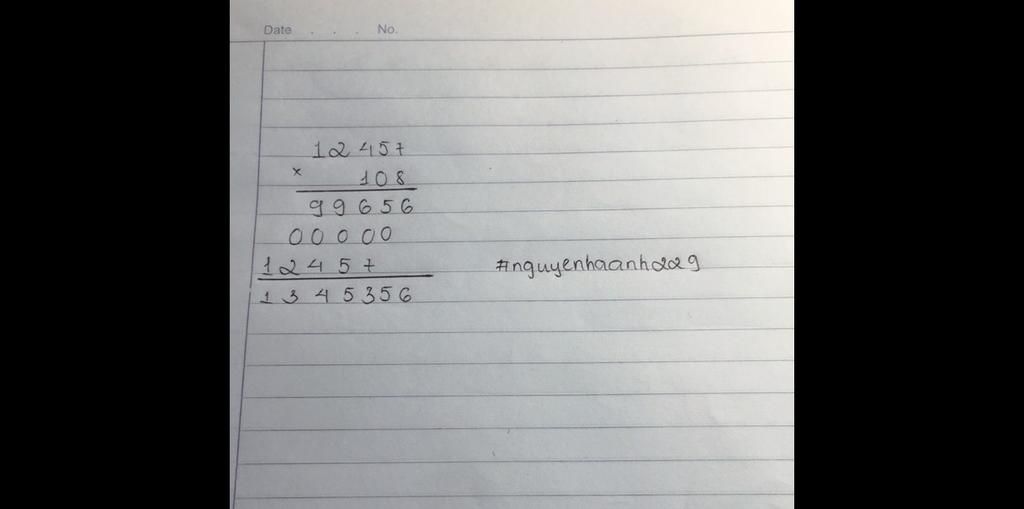 Date . . . No.
12457
× 108
99656
00000
12457 #nguyenhaanh229
1345356